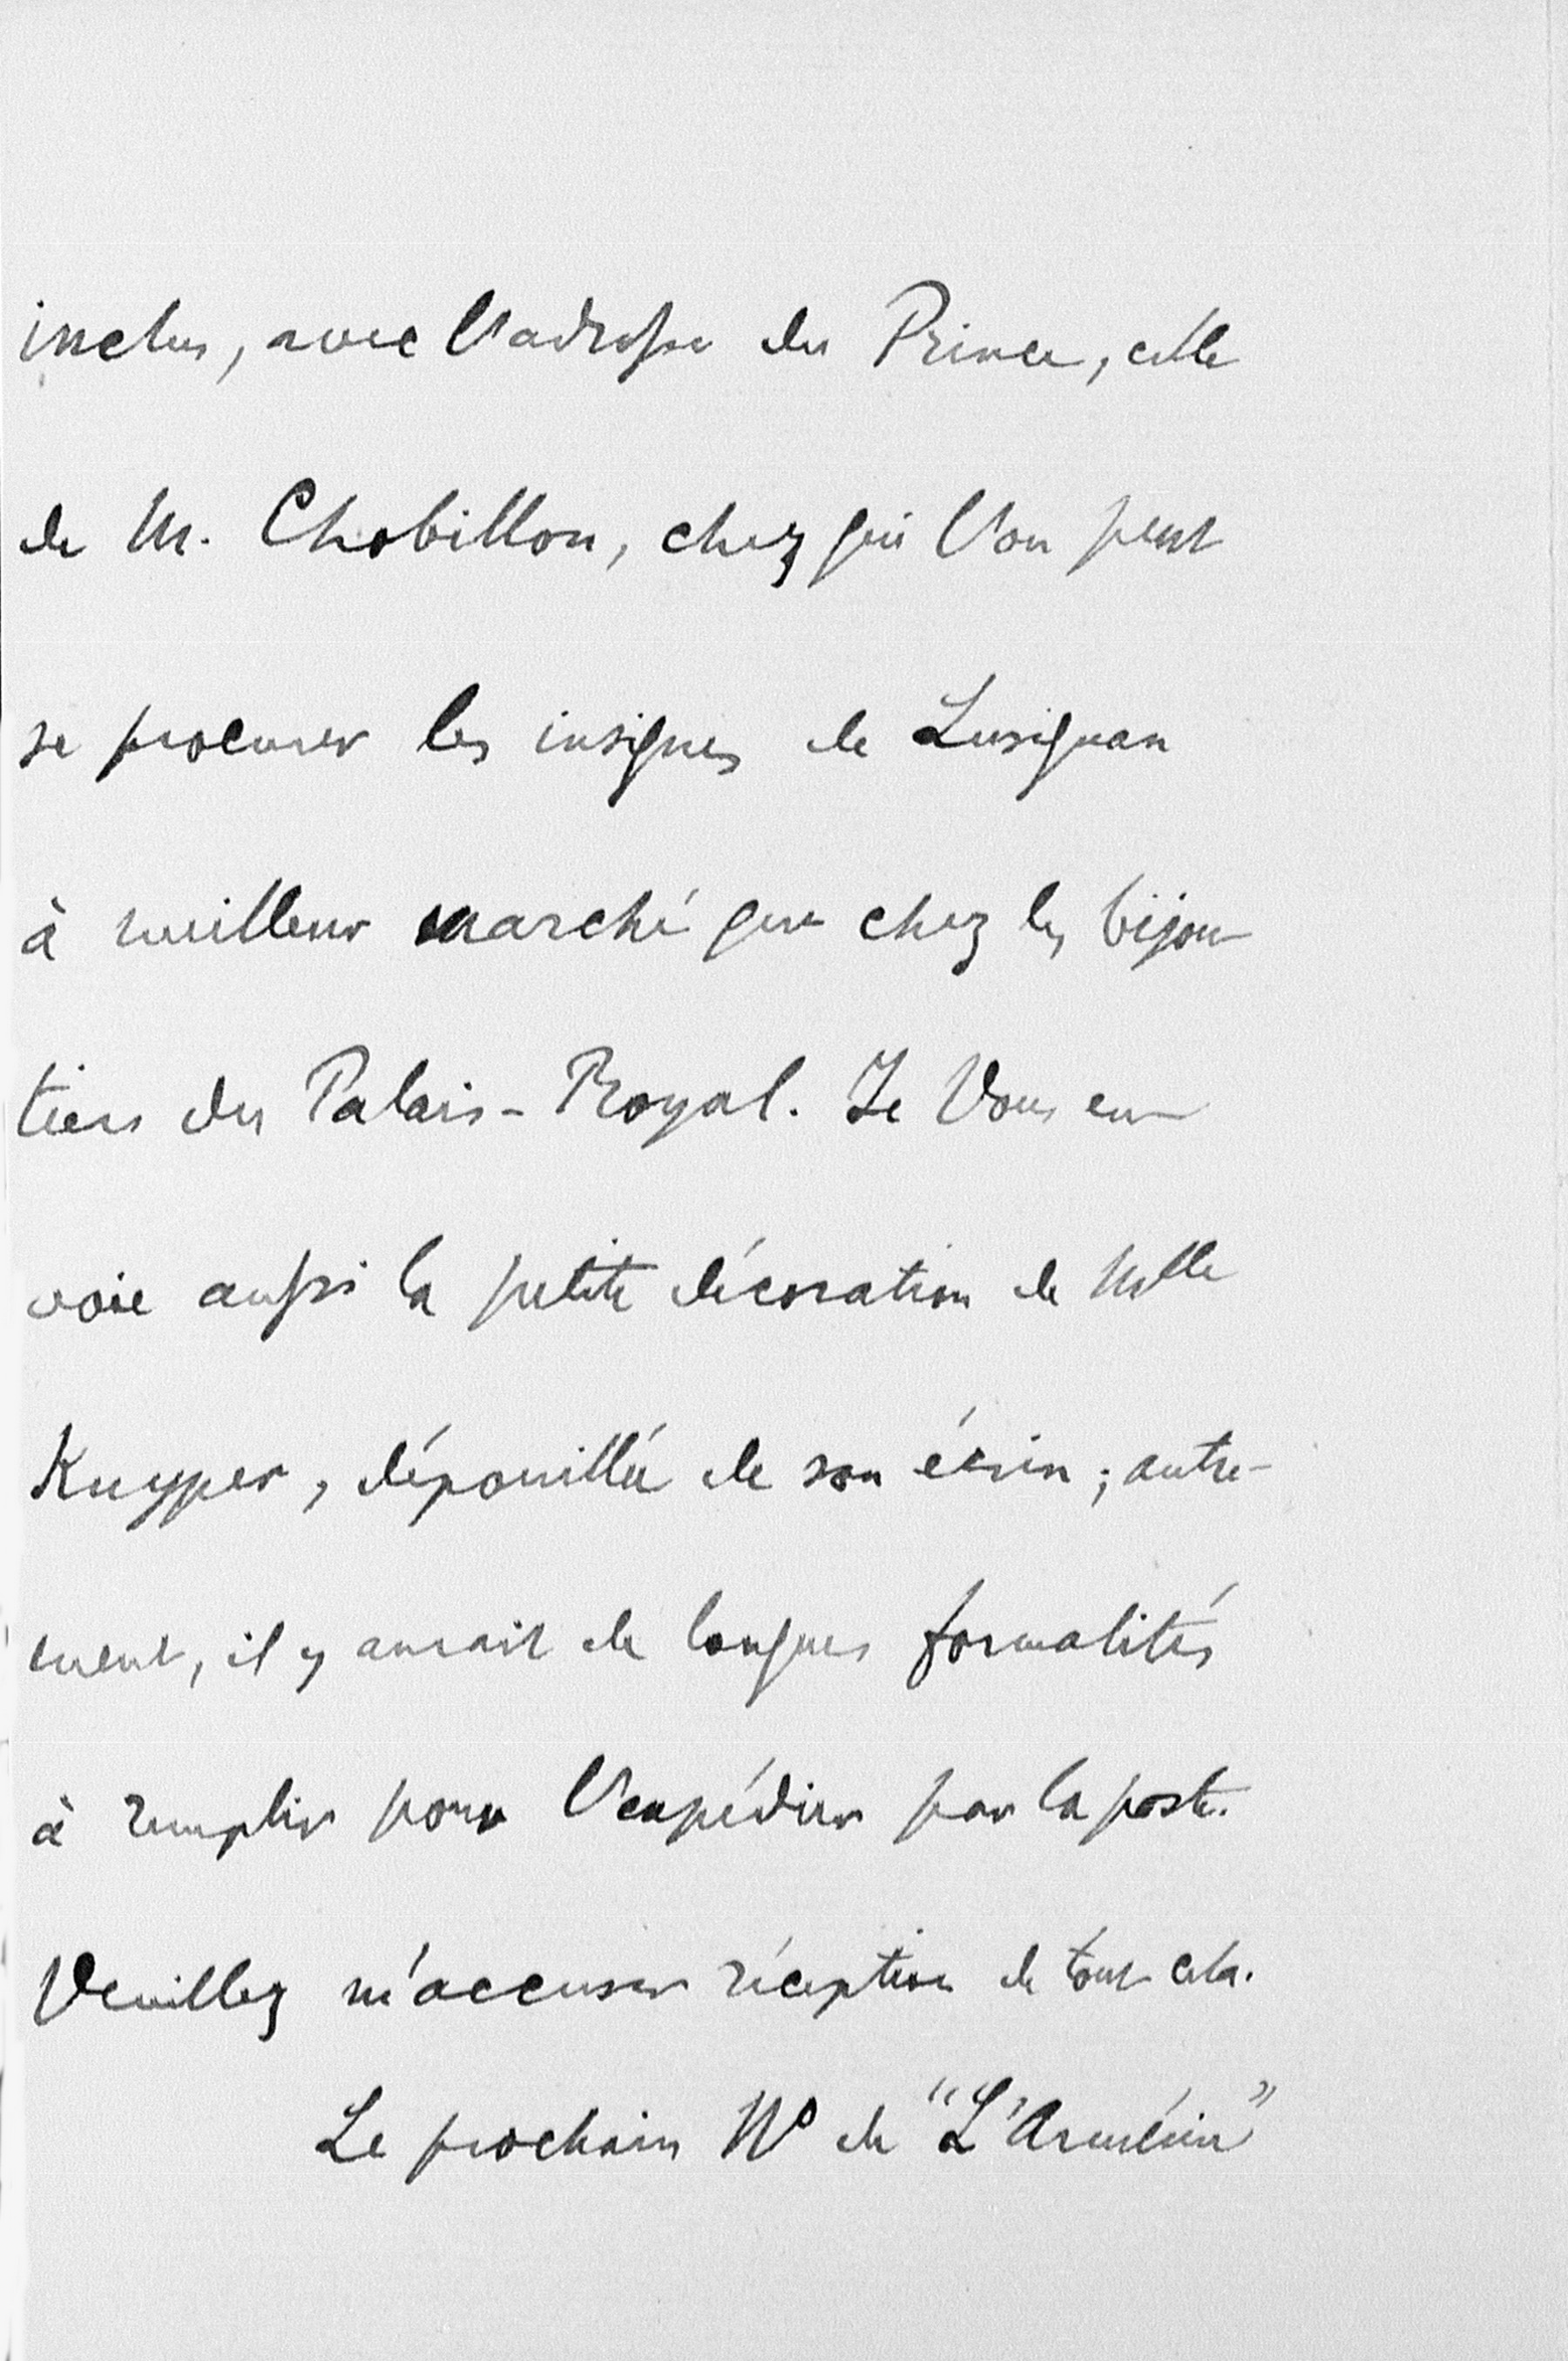 inclus, avec l'adresse du Prince, celle
de M. Chobillon, chez qui l'on peut
se procurer les insignes de Lusignan
à meilleur marché que chez les bijou-
tiers du Palais-Royal. Je Vous en-
voie aussi la petite décoration de Mlle
Kuyper, dépouillée de son écrin ; autre-
ment, il y aurait de longues formalités
à remplir pour l'expédier par la poste.
Veuillez m'accuser réception de tout cela.
Le prochain No de "L'Arménie"